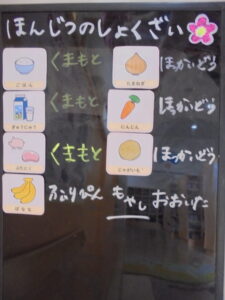 ほんじつのしょくざい
ごはん くまもと
たまねぎ ほっかいどう
ぎゅうにゅう くまもと
にんじん ほっかいどう
ぶたにく くまもと
じゃがいも ほっかいどう
ばなな ふぃりぴん
もやし おおいた